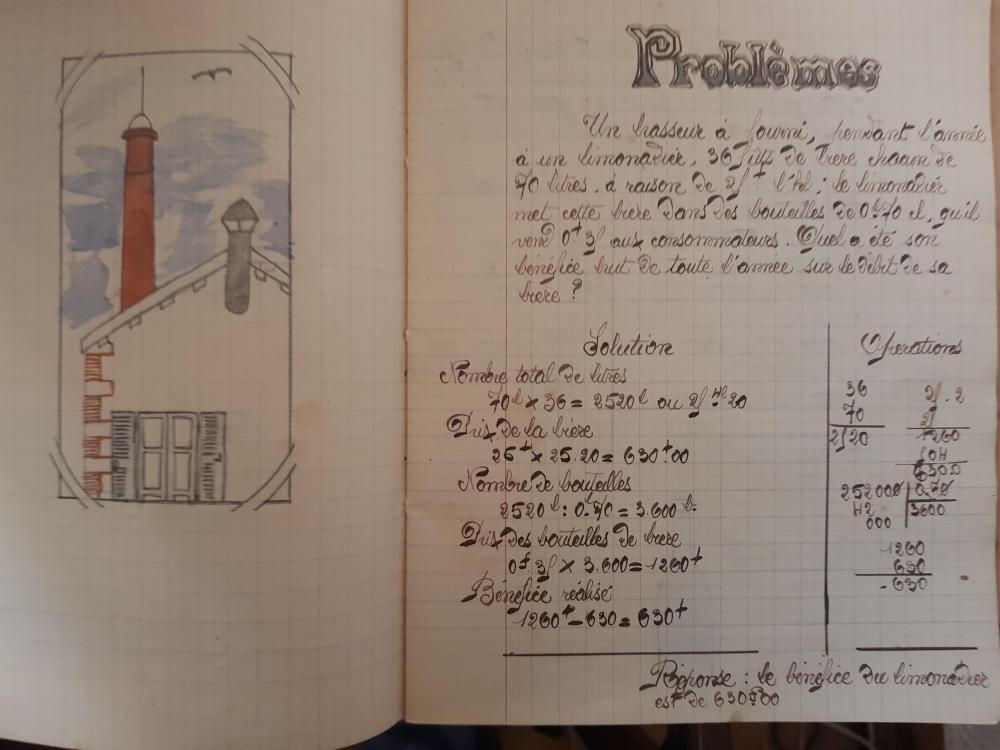 Problèmes
Un brasseur à fourni, pendant l'année
à un limonadier, 36 fûts de biere chacun de
70 litres, à raison de 25f l'hl ; le limonadier
met cette bière dans des bouteilles de 0l.70 cl, qu'il
vend 0f35 aux consommateurs. Quel a été son
bénéfice brut de toute l'année sur le débit de sa
biere ?
Solution
Nombre total de litres
70l × 36 = 2520l ou 25Hl20
Prix de la bière
25f × 25.20 = 630f00
Nombre de bouteilles
2520l : 0.70 = 3.600 b.
Prix des bouteilles de biere
0f.35 × 3.600 = 1260f
Bénéfice réalisé
1260f - 630 = 630f
Opérations
36 25.2
70 25
2520 1260
504
6300
252000 0.70
42 3600
000
1260
630
- 630
Réponse : le bénéfice du limonadier
est de 630f00